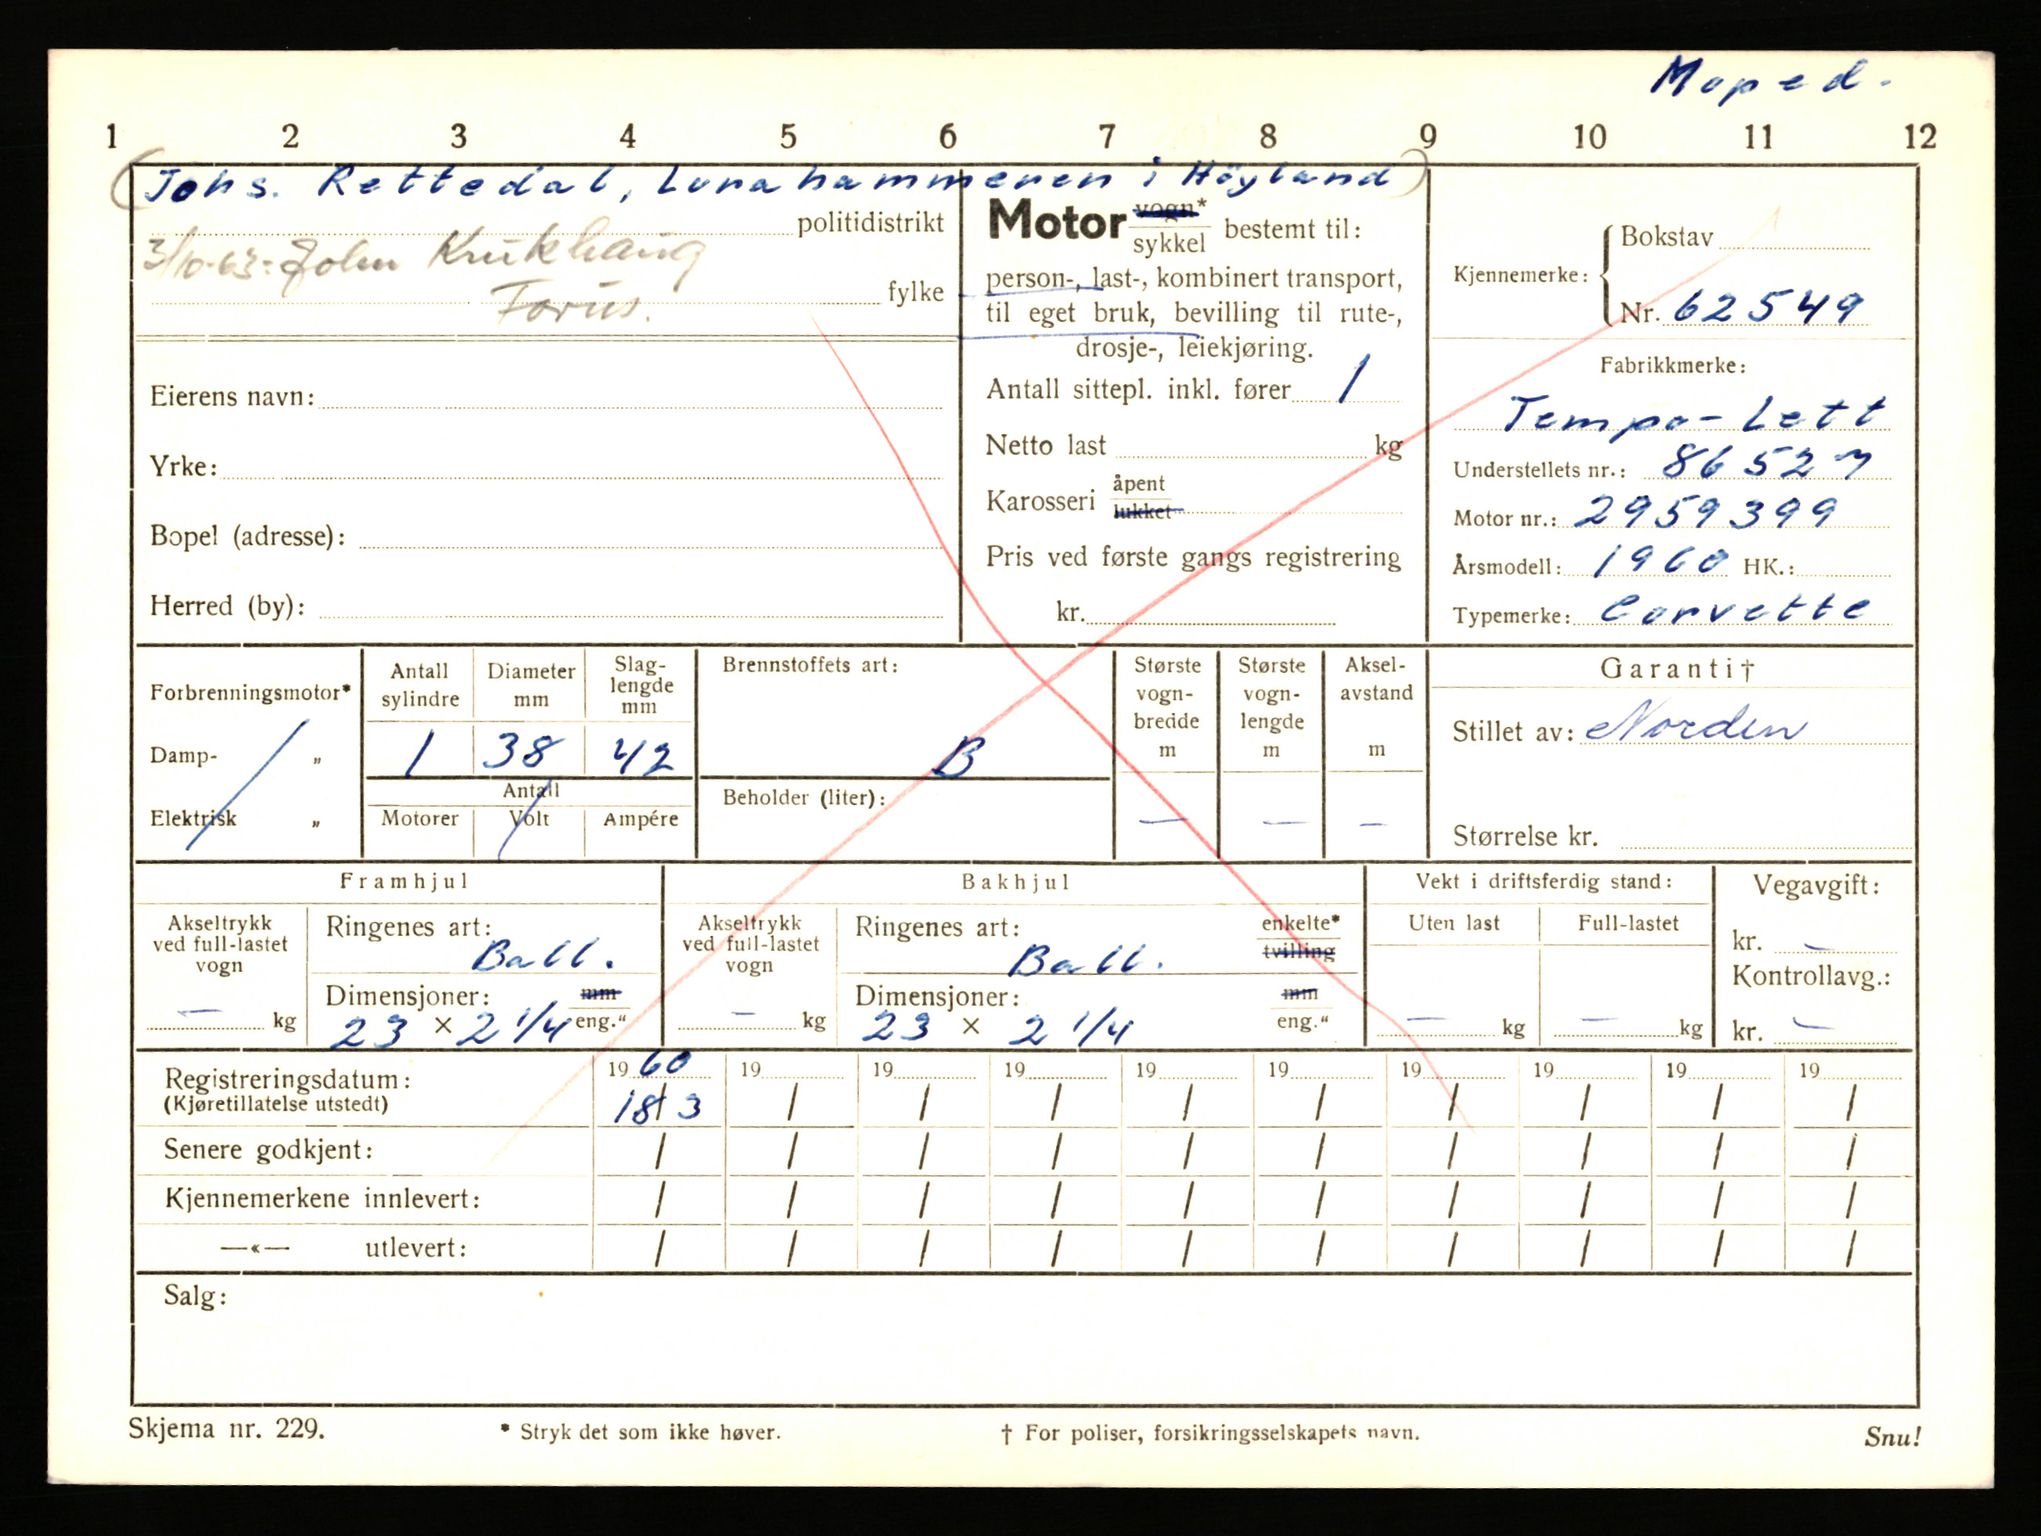 Moped.
1 2 3 4 5 6 7 8 9 10 11 12
(Johs. Rettedal, Lurahammeren i Höyland)
politidistrikt
3/10-63: John Krukhaug
Forus.
fylke
Eierens navn:
Yrke:
Bopel (adresse):
Herred (by):
Motor vogn*
sykkel bestemt til:
person-, last-, kombinert transport,
til eget bruk, bevilling til rute-,
drosje-, leiekjøring.
Antall sittepl. inkl. fører 1
Netto last kg
Karosseri åpent
lukket
Pris ved første gangs registrering
kr.
Kjennemerke: Bokstav
Nr. 62549
Fabrikkmerke:
Tempo-Lett
Understellets nr.: 86527
Motor nr.: 2959399
Årsmodell: 1960 HK.:
Typemerke: Corvette
Forbrenningsmotor*
Damp- „
Elektrisk „
Antall sylindre
Diameter mm
Slag-
lengde
mm
1 38 42
Antall
Motorer Volt Ampére
Brennstoffets art:
B
Beholder (liter):
Største
vogn-
bredde
m
—
Største
vogn-
lengde
m
—
Aksel-
avstand
m
—
Garanti†
Stillet av: Norden
Størrelse kr.
Framhjul
Akseltrykk
ved full-lastet
vogn
— kg
Ringenes art:
Ball.
Dimensjoner: mm
23 × 2 1/4 eng.“
Bakhjul
Akseltrykk
ved full-lastet
vogn
— kg
Ringenes art: enkelte*
Ball. tvilling
Dimensjoner: mm
23 × 2 1/4 eng.“
Vekt i driftsferdig stand:
Uten last Full-lastet
— kg — kg
Vegavgift:
kr. —
Kontrollavg.:
kr. —
Registreringsdatum: 1960 19 19 19 19 19 19 19 19 19
(Kjøretillatelse utstedt) 18/3 / / / / / / / / /
Senere godkjent: / / / / / / / / / /
Kjennemerkene innlevert: / / / / / / / / / /
—«— utlevert: / / / / / / / / / /
Salg:
Skjema nr. 229. * Stryk det som ikke høver. † For poliser, forsikringsselskapets navn. Snu!